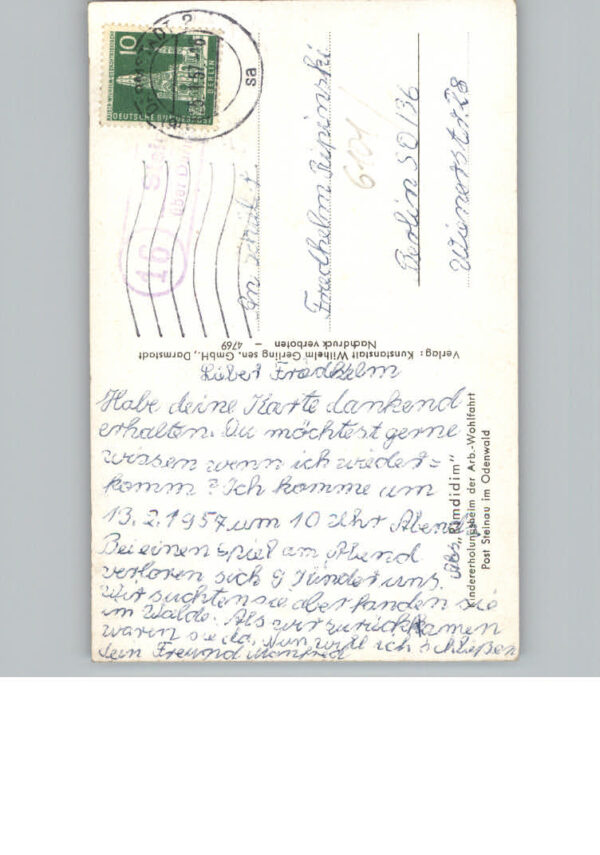 Lieber Friedhelm
Habe deine Karte dankend
erhalten. Du möchtest gerne
wissen wenn ich wieder=
komm? Ich komme am
13.2.1957 um 10 Uhr Abends
Bei einen Spiel am Abend
verloren sich 9 Kinder uns.
Wir suchten sie aber fanden sie
im Walde. Als wir zurückkamen
waren sie da. Nun will ich schließen
dein Freund Manfred
Abs. „Rimdidim"
Kindererholungsheim der Arb.-Wohlfahrt
Post Steinau im Odenwald
Verlag: Kunstanstalt Wilhelm Gerling sen. GmbH., Darmstadt
Nachdruck verboten – 4769
10
DEUTSCHE BUNDESPOST
BERLIN
DARMSTADT 2
sa
(16)
An
Friedhelm Ripinski
6101
Berlin SO/36
Wienerstr. 28